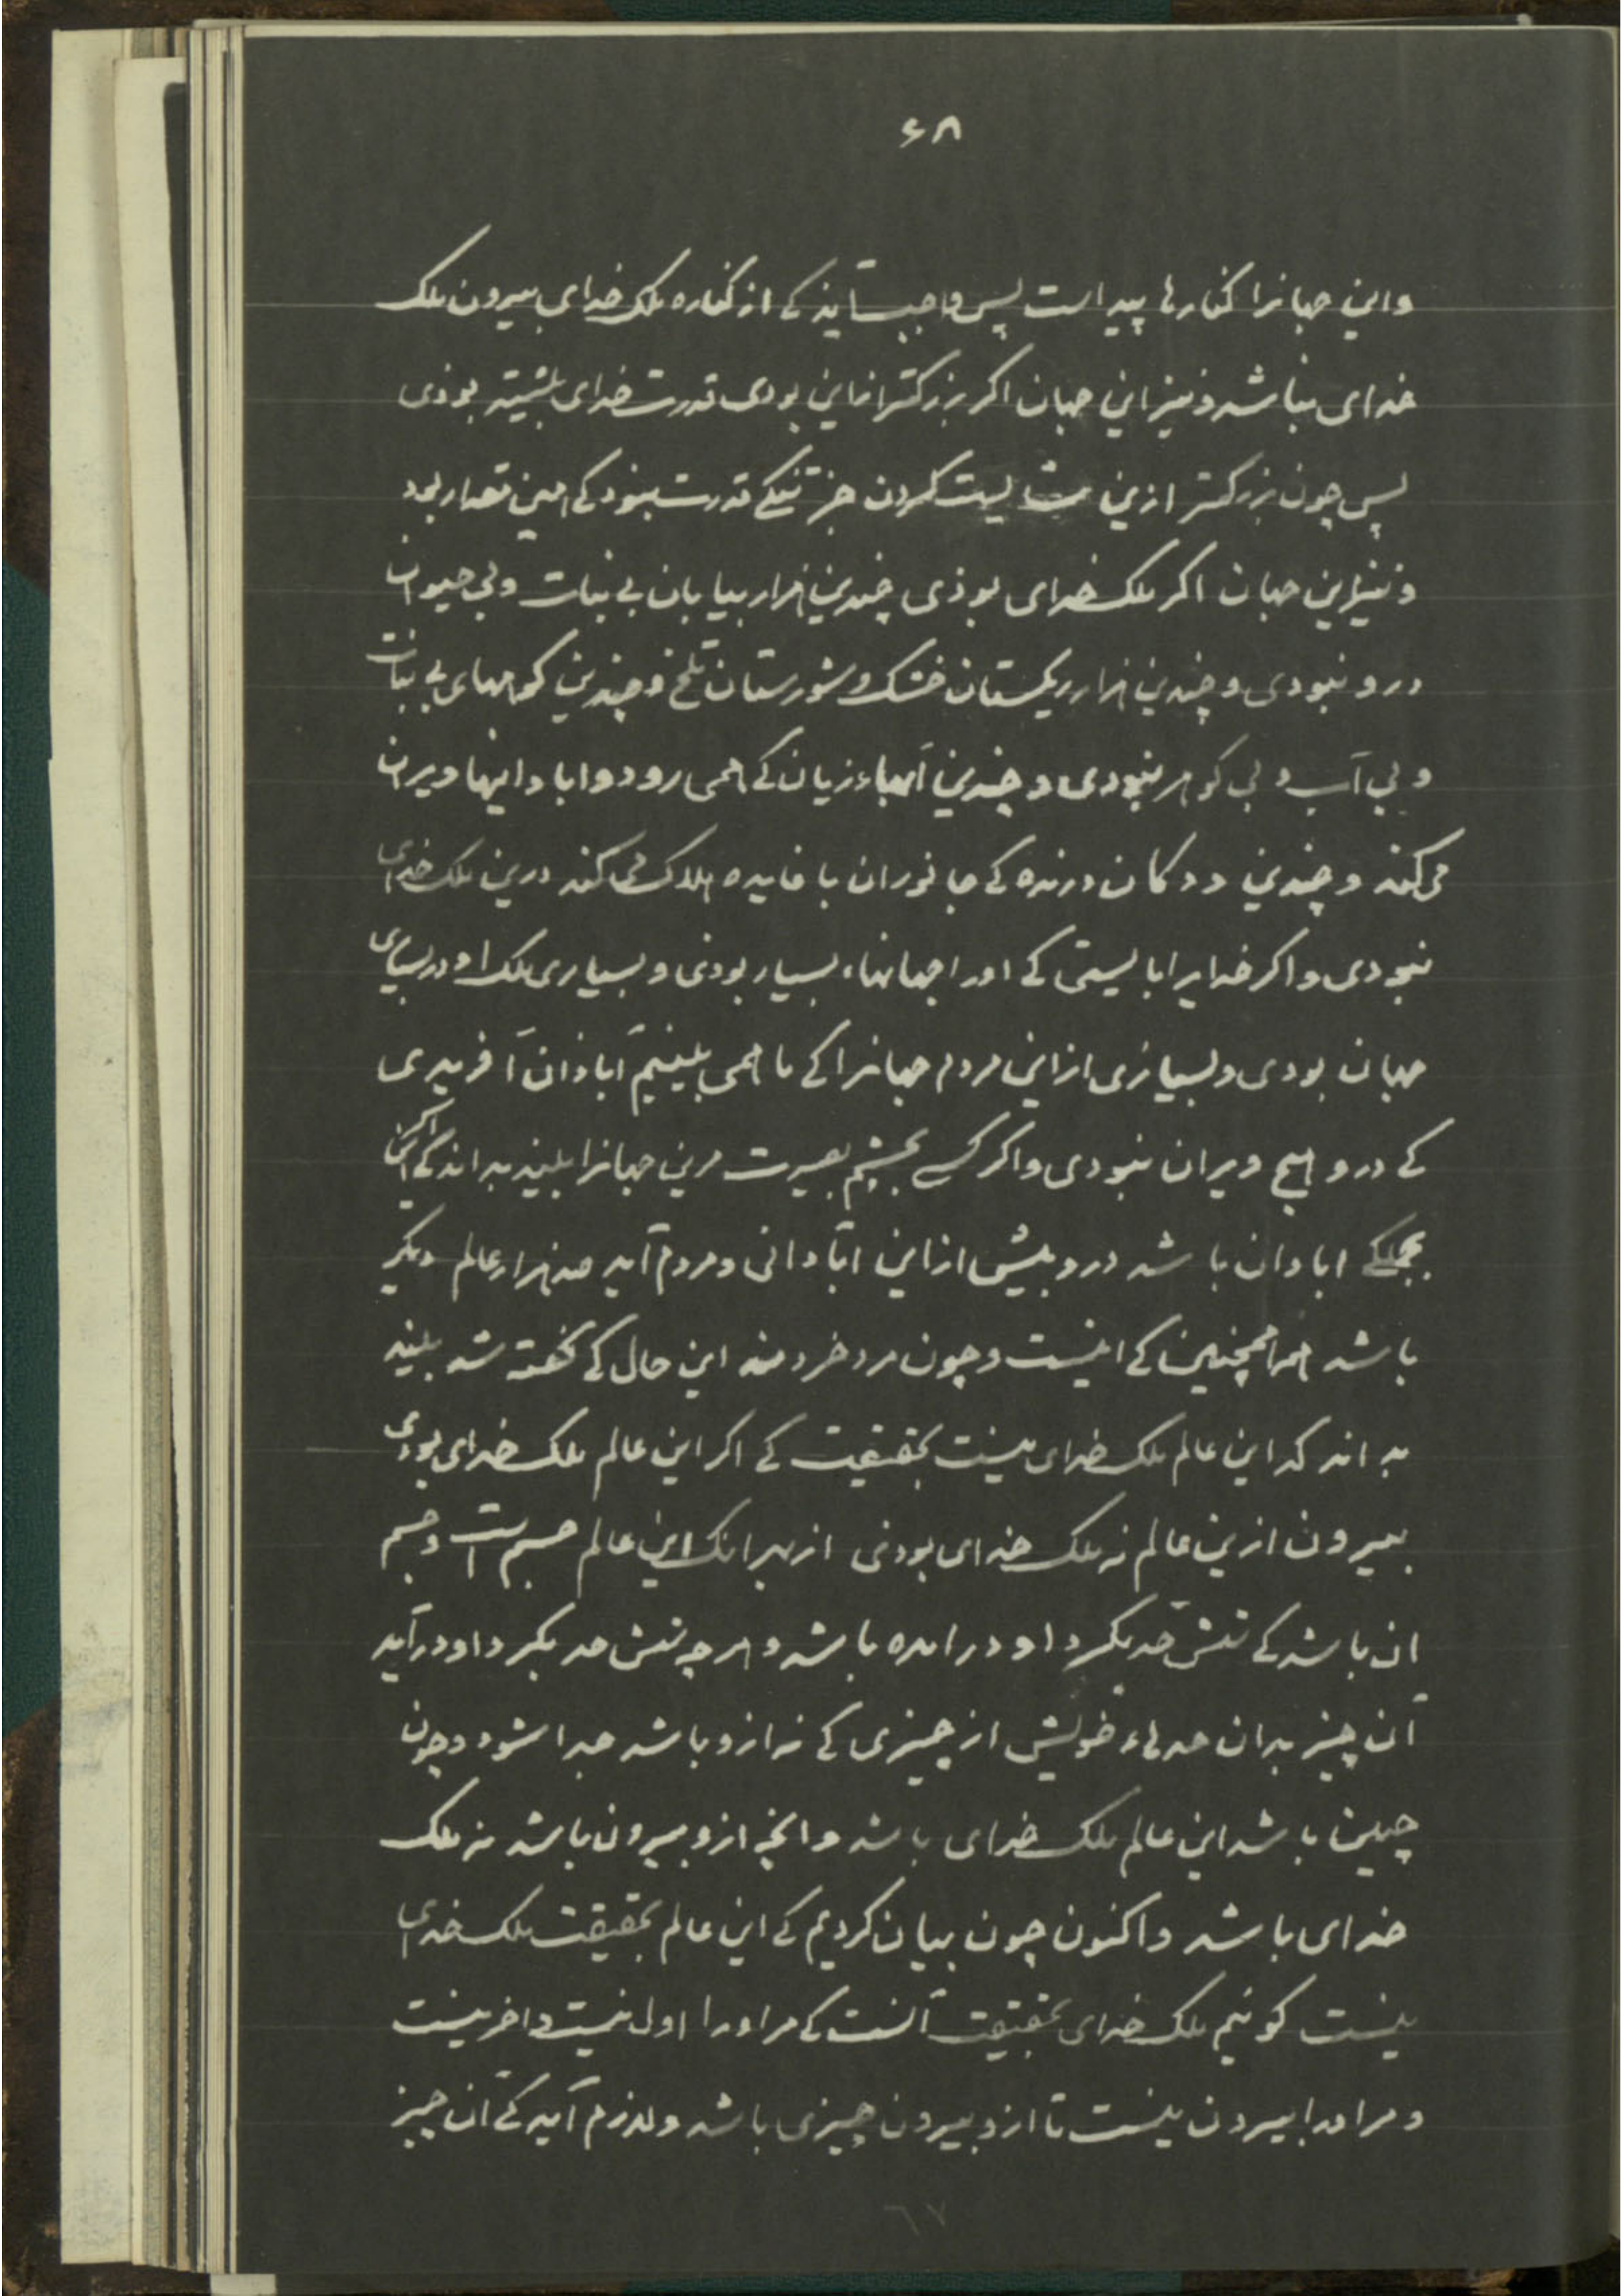 ۶۸
واین جهانرا کنارها پیداست پس واجب آید کی از کناره ملک خدای بیرون ملک
خدای نباشد و نیز این جهان اکر بزرکتر ازاین بودی قدرت خدای بیشتر بوذی
پس چون بزرکتر ازین نشایست کردن جز تنکی قدرت نبود کی همین مقدار بود
و نیز این جهان اکر ملک خدای بوذی چندین هزار بیابان بی نبات و بی حیوان
درو نبودی و چندین هزار ریکستان خشک و شورستان تلخ و چندین کوههای بی نبات
و بی آب و بی کوهر نبودی و چندین آبهاء زیان کی همی رود و ابادانیها ویران
می کند و چندین ددکان درنده کی جانوران با فایده هلاک می کند درین ملک خدای
نبودی و اکر خدایرا بایستی کی اورا جهانهاء بسیار بودی و بسیاری ملک او در بسیاری
جهان بودی و بسیاری ازاین مردم جهانرا کی ما همی بینیم آباذان آفریدی
کی درو هیچ ویران نبودی و اکر کسی بچشم بصیرت مرین جهانرا ببیند بداند کی اکر این
بجملکی ابادان باشد درو بیش ازاین ابادانی و مردم آید صدهزار عالم دیکر
باشد همچنین کی اینست و چون مرد خردمند این حال کی کفته شد ببیند
بداند که این عالم ملک خدای نیست بحقیقت کی اکر این عالم ملک خدای بودی
بیرون ازین عالم نه ملک خدای بودی از بهر انک این عالم جسم است و جسم
ان باشد کی شش حد بکرد او در امده باشد و هر چه شش حد بکرد او درآید
آن چیز بدان حدهاء خویش از چیزی کی نه ازو باشد جدا شود و چون
چنین باشد این عالم ملک خدای باشد و انچه ازو بیرون باشد نه ملک
خدای باشد و اکنون چون بیان کردیم کی این عالم بحقیقت ملک خدای
نیست کوئیم ملک خدای بحقیقت آنست کی مراورا اول نیست و اخر نیست
و مراورا بیرون نیست تا ازو بیرون چیزی باشد و لازم آید کی آن چیز
٦٧